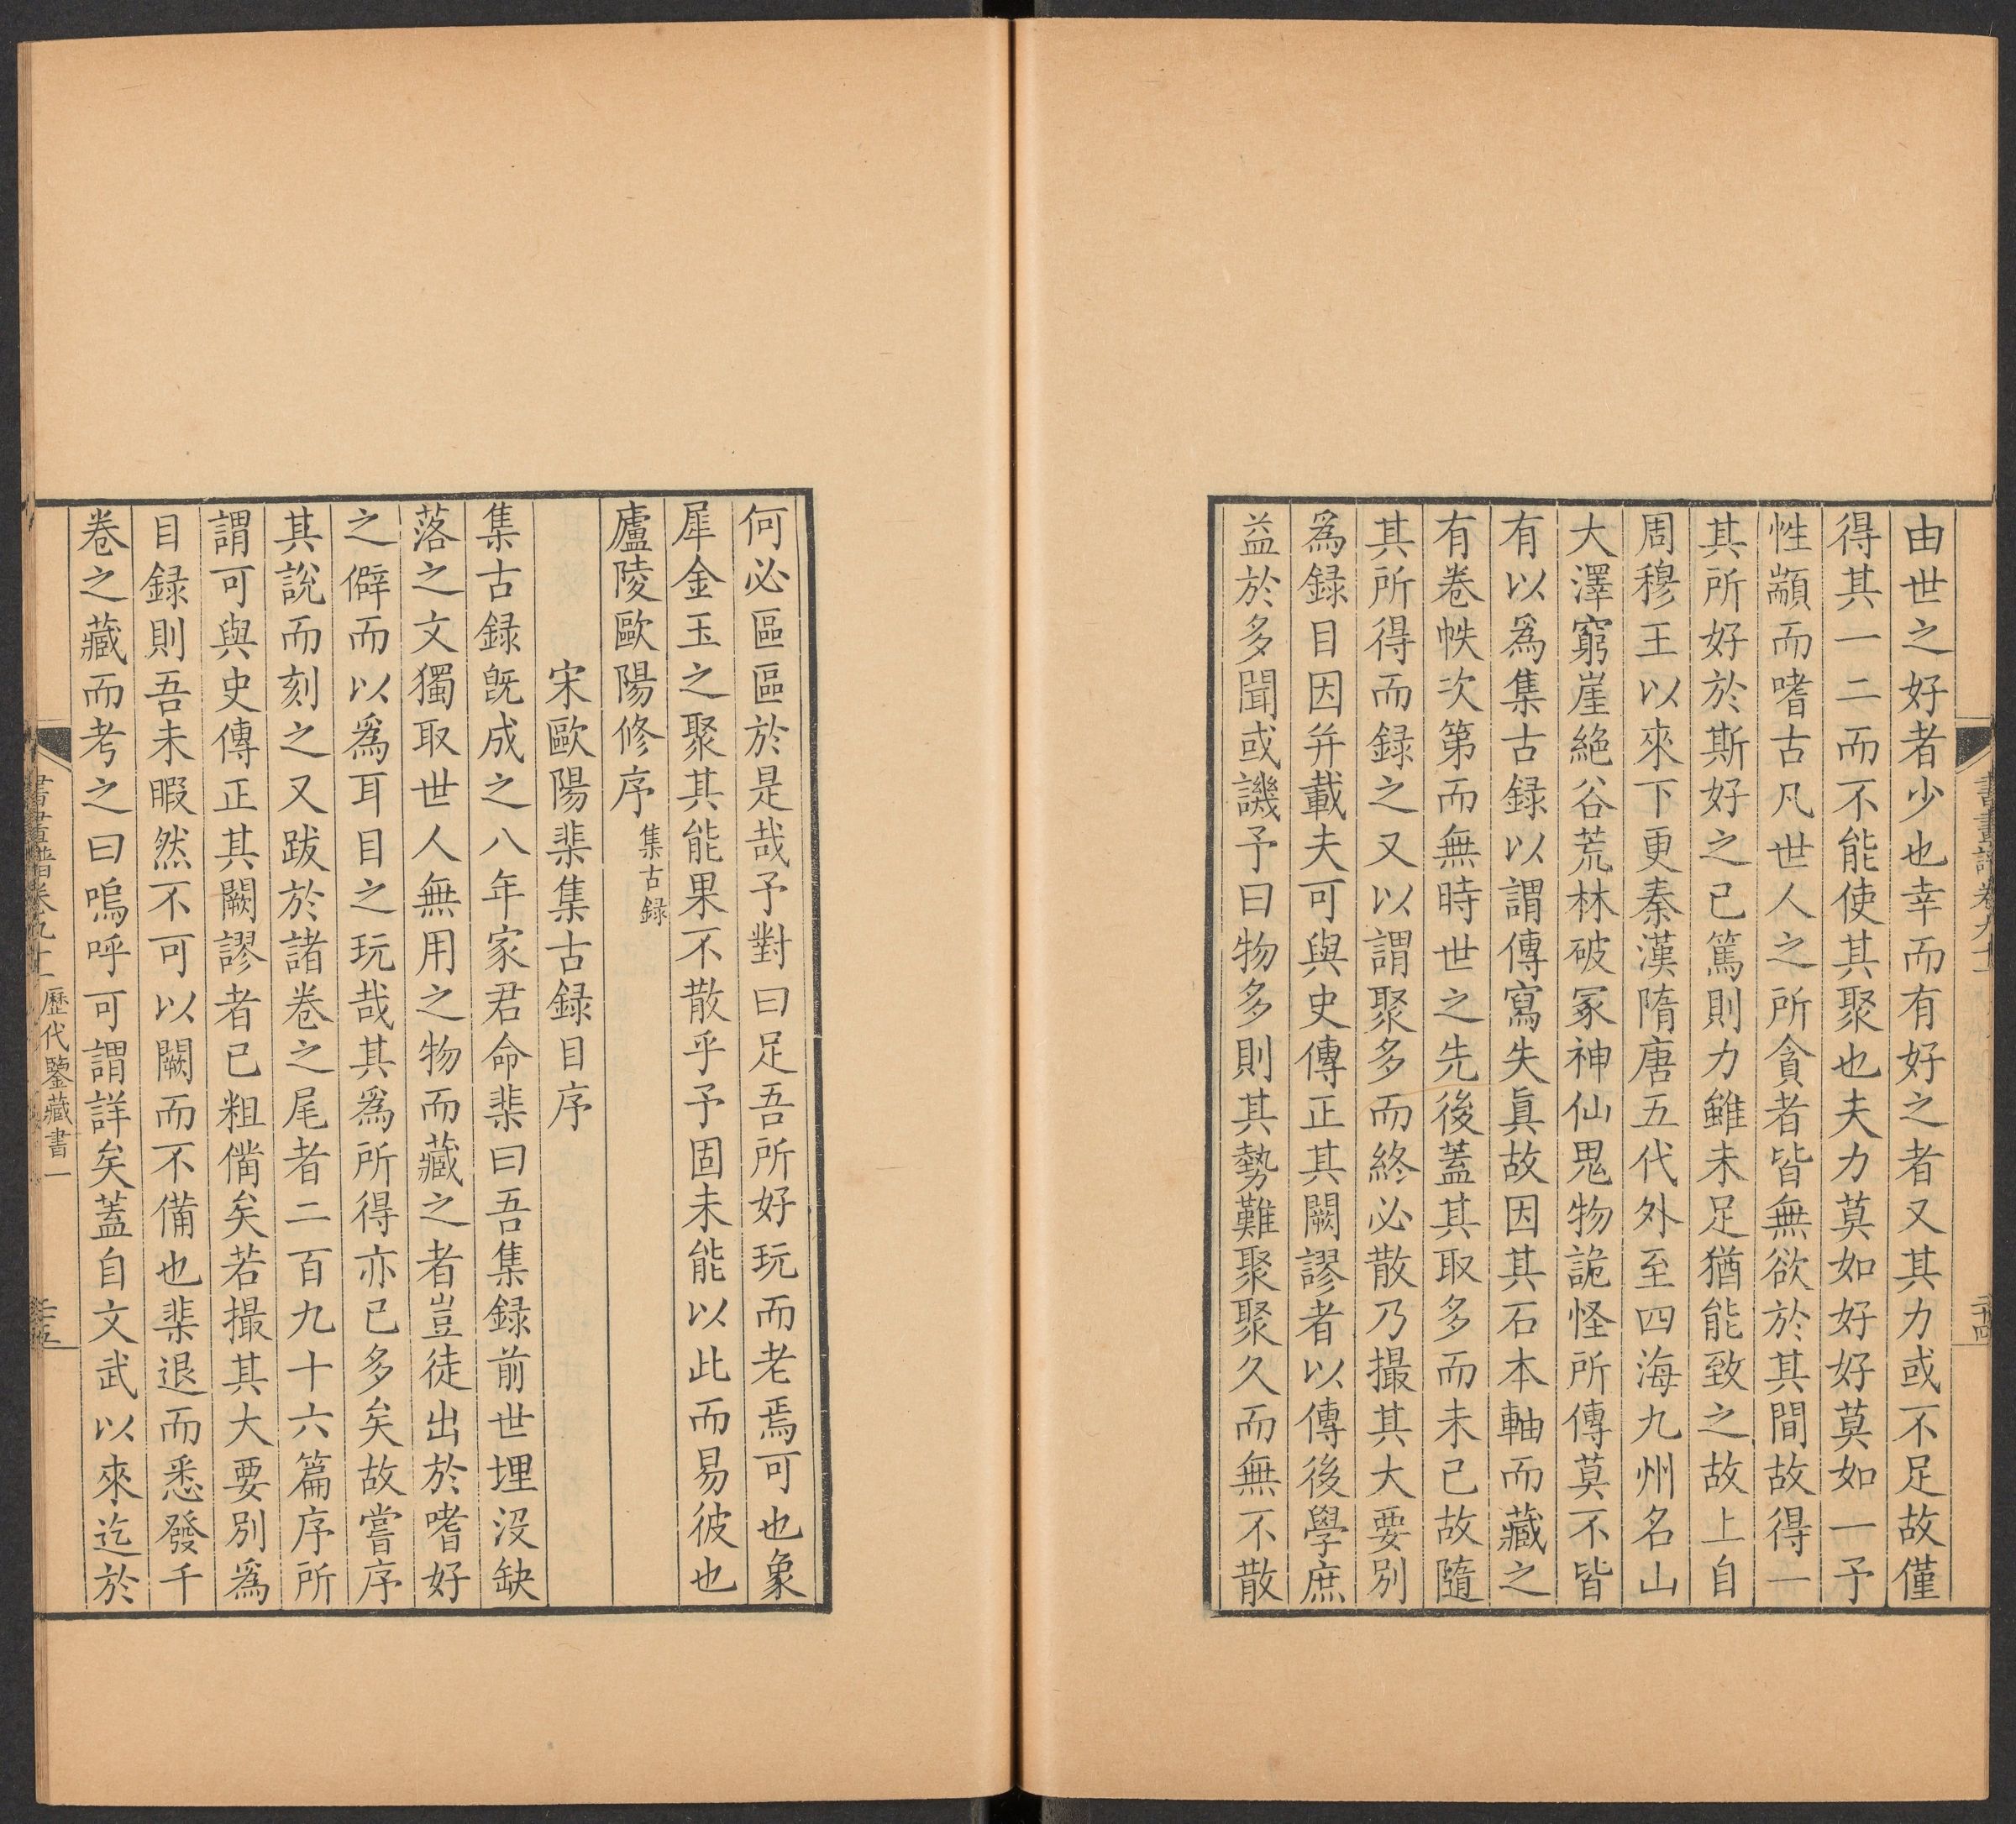 由世之好者少也幸而有好之者又其力或不足故僅
得其一二而不能使其聚也夫力莫如好好莫如一予
性顓而嗜古凡世人之所貪者皆無欲於其間故得一
其所好於斯好之已篤則力雖未足猶能致之故上自
周穆王以來下更秦漢隋唐五代外至四海九州名山
大澤窮崖絕谷荒林破冢神仙鬼物詭怪所傳莫不皆
有以爲集古録以謂傳寫失眞故因其石本軸而藏之
有卷帙次第而無時世之先後蓋其取多而未已故隨
其所得而録之又以謂聚多而終必散乃撮其大要別
爲録目因并載夫可與史傳正其闕謬者以傳後學庶
益於多聞或譏予曰物多則其勢難聚聚久而無不散
何必區區於是哉予對曰足吾所好玩而老焉可也象
犀金玉之聚其能果不散乎予固未能以此而易彼也
廬陵歐陽修序 集古録
宋歐陽棐集古録目序
集古録旣成之八年家君命棐曰吾集録前世埋沒缺
落之文獨取世人無用之物而藏之者豈徒出於嗜好
之僻而以爲耳目之玩哉其爲所得亦已多矣故嘗序
其說而刻之又跋於諸卷之尾者二百九十六篇序所
謂可與史傳正其闕謬者已粗備矣若撮其大要別爲
目録則吾未暇然不可以闕而不備也棐退而悉發千
卷之藏而考之曰嗚呼可謂詳矣蓋自文武以來迄於
書畫譜卷九十一 歷代鑒藏書一